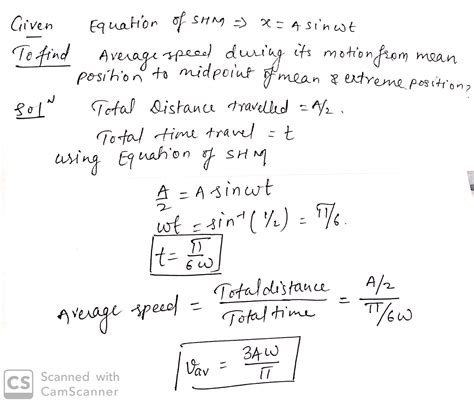 Given Equation of SHM ⇒ x = A sinωt
To find Average speed during its motion from mean
position to midpoint of mean & extreme position?
Solᴺ Total Distance travelled = A/2.
Total time travel = t
using Equation of SHM
A/2 = A sinωt
ωt = sin⁻¹(1/2) = π/6.
t = π/6ω
Average speed = Total distance/Total time = A/2/π/6ω
Vav = 3Aω/π
CS Scanned with
CamScanner